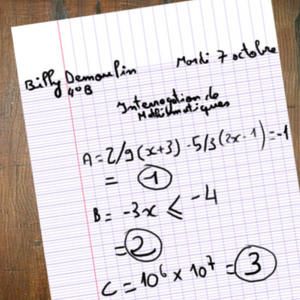 Billy Demoulin
Mardi 7 octobre
4°B
Interrogation de
Mathématiques
A = 2/9 (x+3) - 5/3 (2x - 1) = -1
= 1
B = -3x ⩽ -4
= 2
C = 10⁶ x 10⁷ = 3